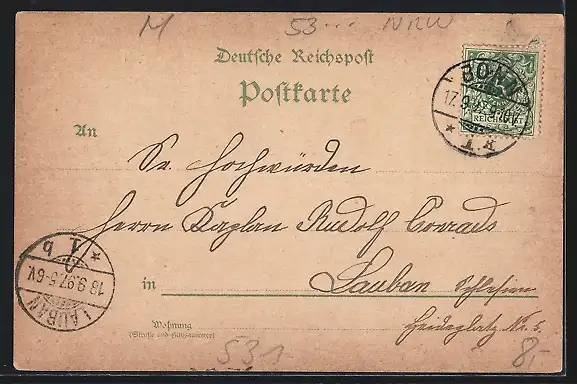 M 53... NRW
Deutsche Reichspost
Postkarte
BONN
17.9.97
REICHSPOST
* 1 *
An
Sr. Hochwürden
Herrn Kaplan Rudolf Conrads
in Lauban Schlesien
Wohnung
(Straße und Hausnummer)
Heideplatz Nr. 5.
LAUBAN
18.9.97.5-6V.
* 1 b
531
8,-